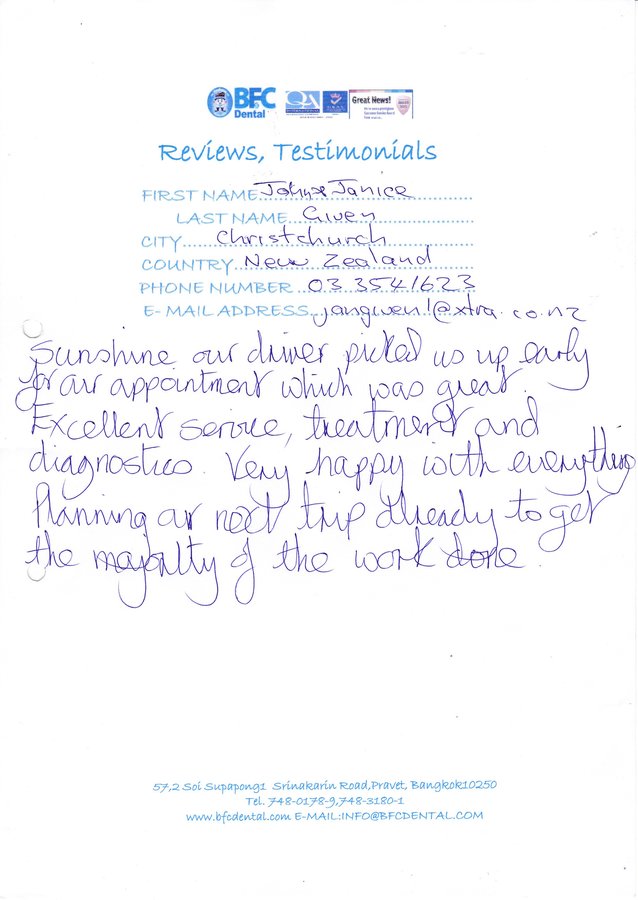 BFC
Dental
QA
INTERNATIONAL
Great News!
Reviews, Testimonials
FIRST NAME John & Janice
LAST NAME Given
CITY Christchurch
COUNTRY New Zealand
PHONE NUMBER 03 3541623
E-MAIL ADDRESS jangiven1@xtra.co.nz
Sunshine our driver picked us up early
for our appointment which was great.
Excellent service, treatment and
diagnostics. Very happy with everything
Planning our next trip already to get
the majority of the work done.
57,2 Soi Supapong1 Srinakarin Road,Pravet, Bangkok10250
Tel. 748-0178-9,748-3180-1
www.bfcdental.com E-MAIL:INFO@BFCDENTAL.COM